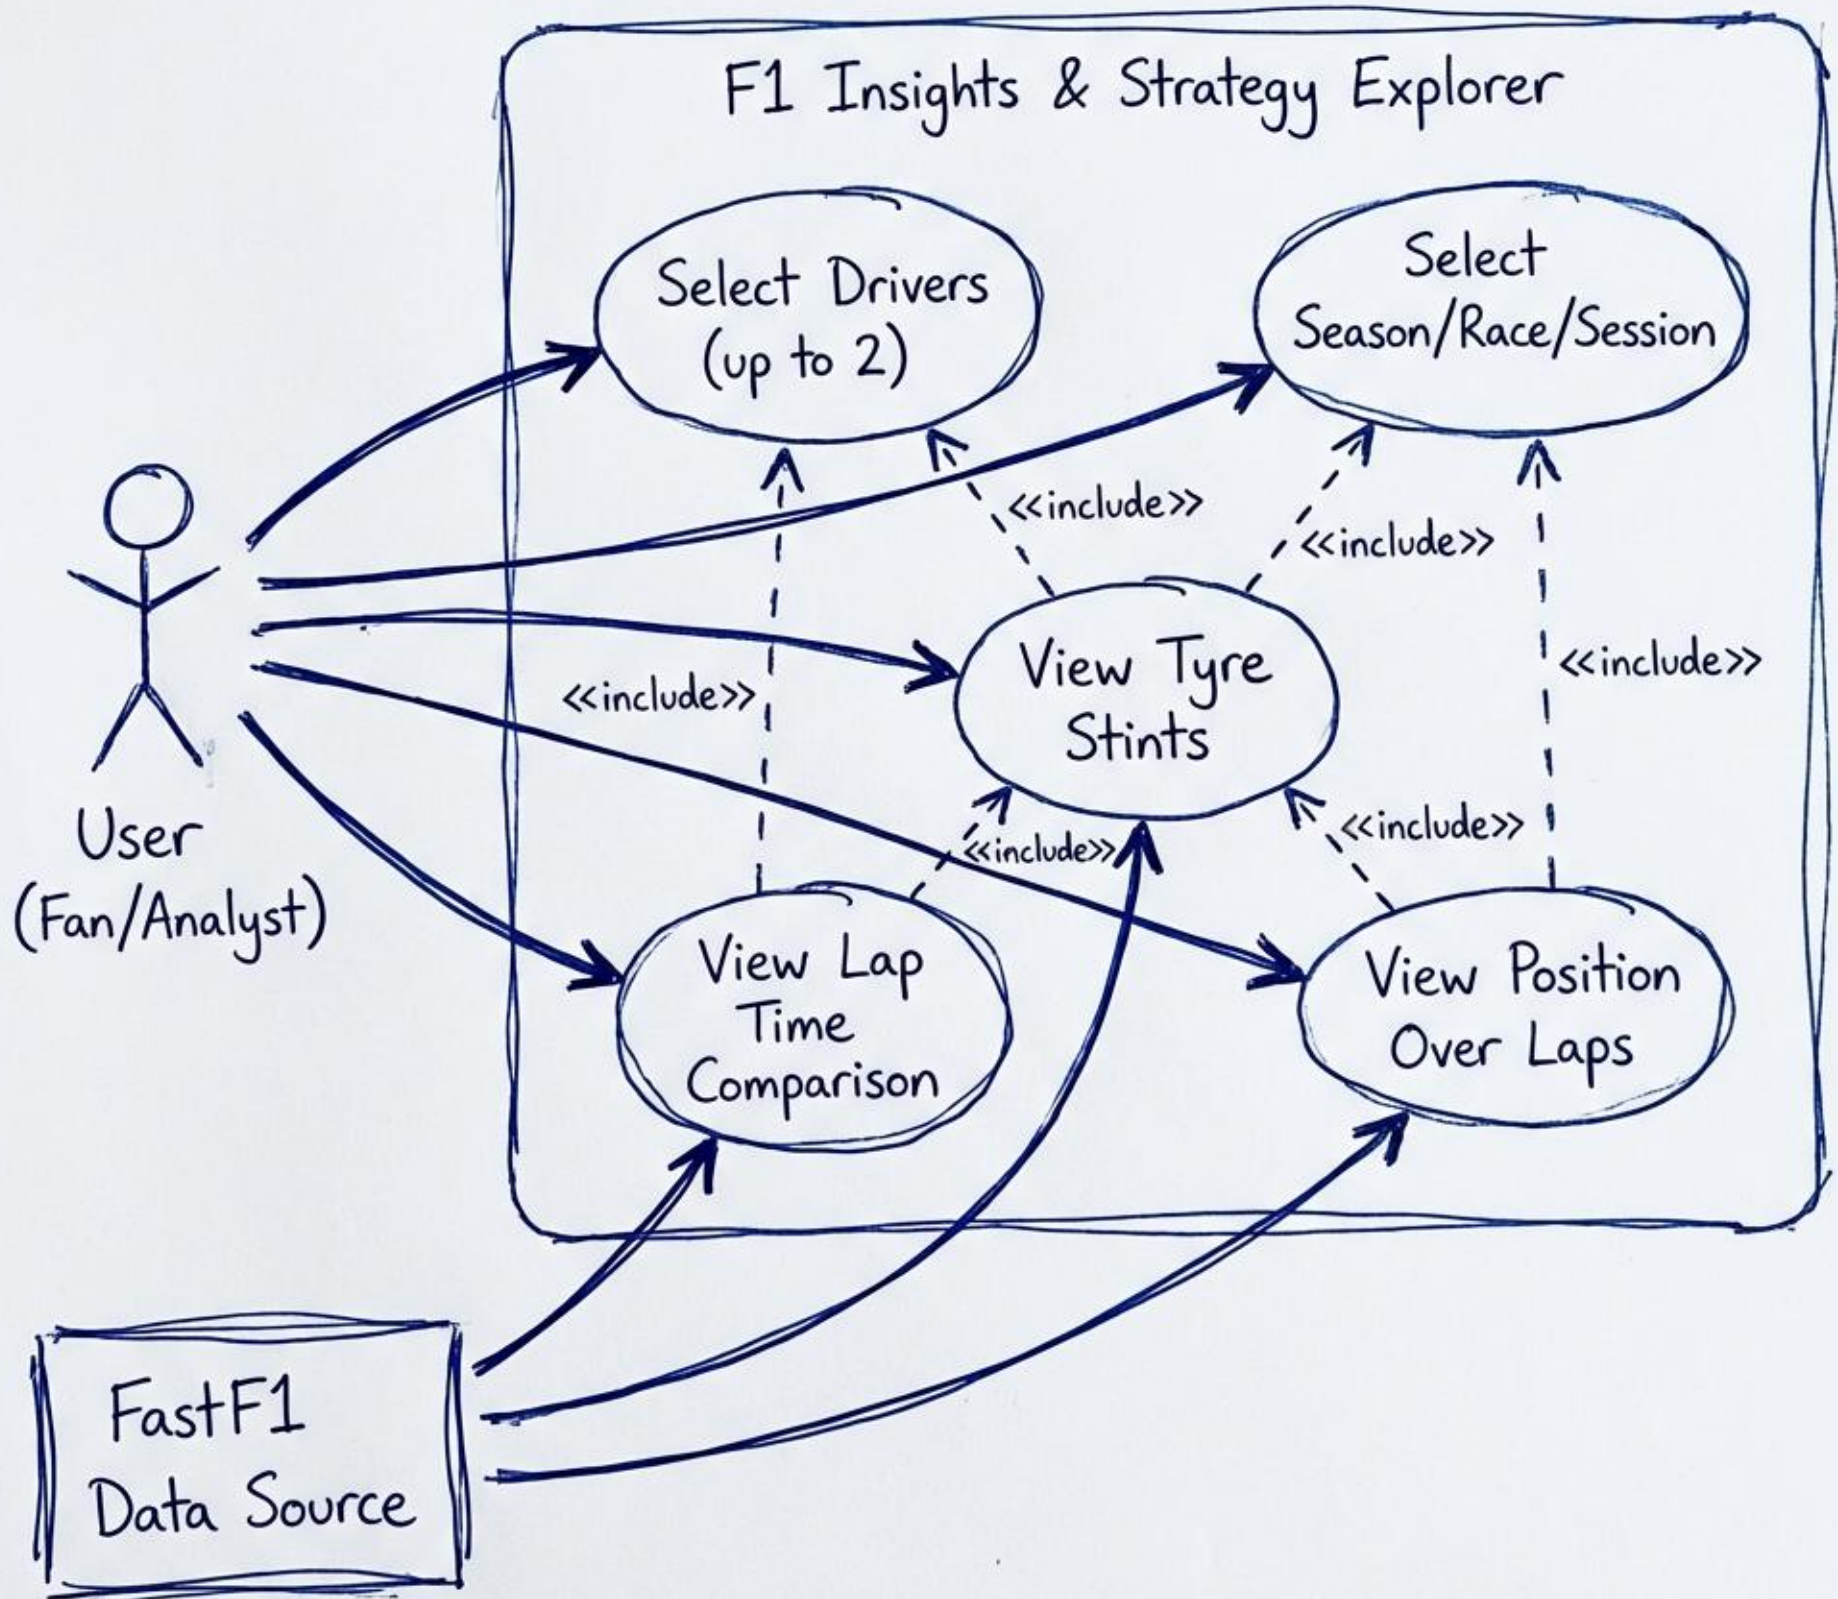 F1 Insights & Strategy Explorer
Select Drivers
(up to 2)
Select
Season/Race/Session
<<include>>
<<include>>
View Tyre
Stints
<<include>>
<<include>>
User
(Fan/Analyst)
<<include>>
<<include>>
View Lap
Time
Comparison
View Position
Over Laps
FastF1
Data Source